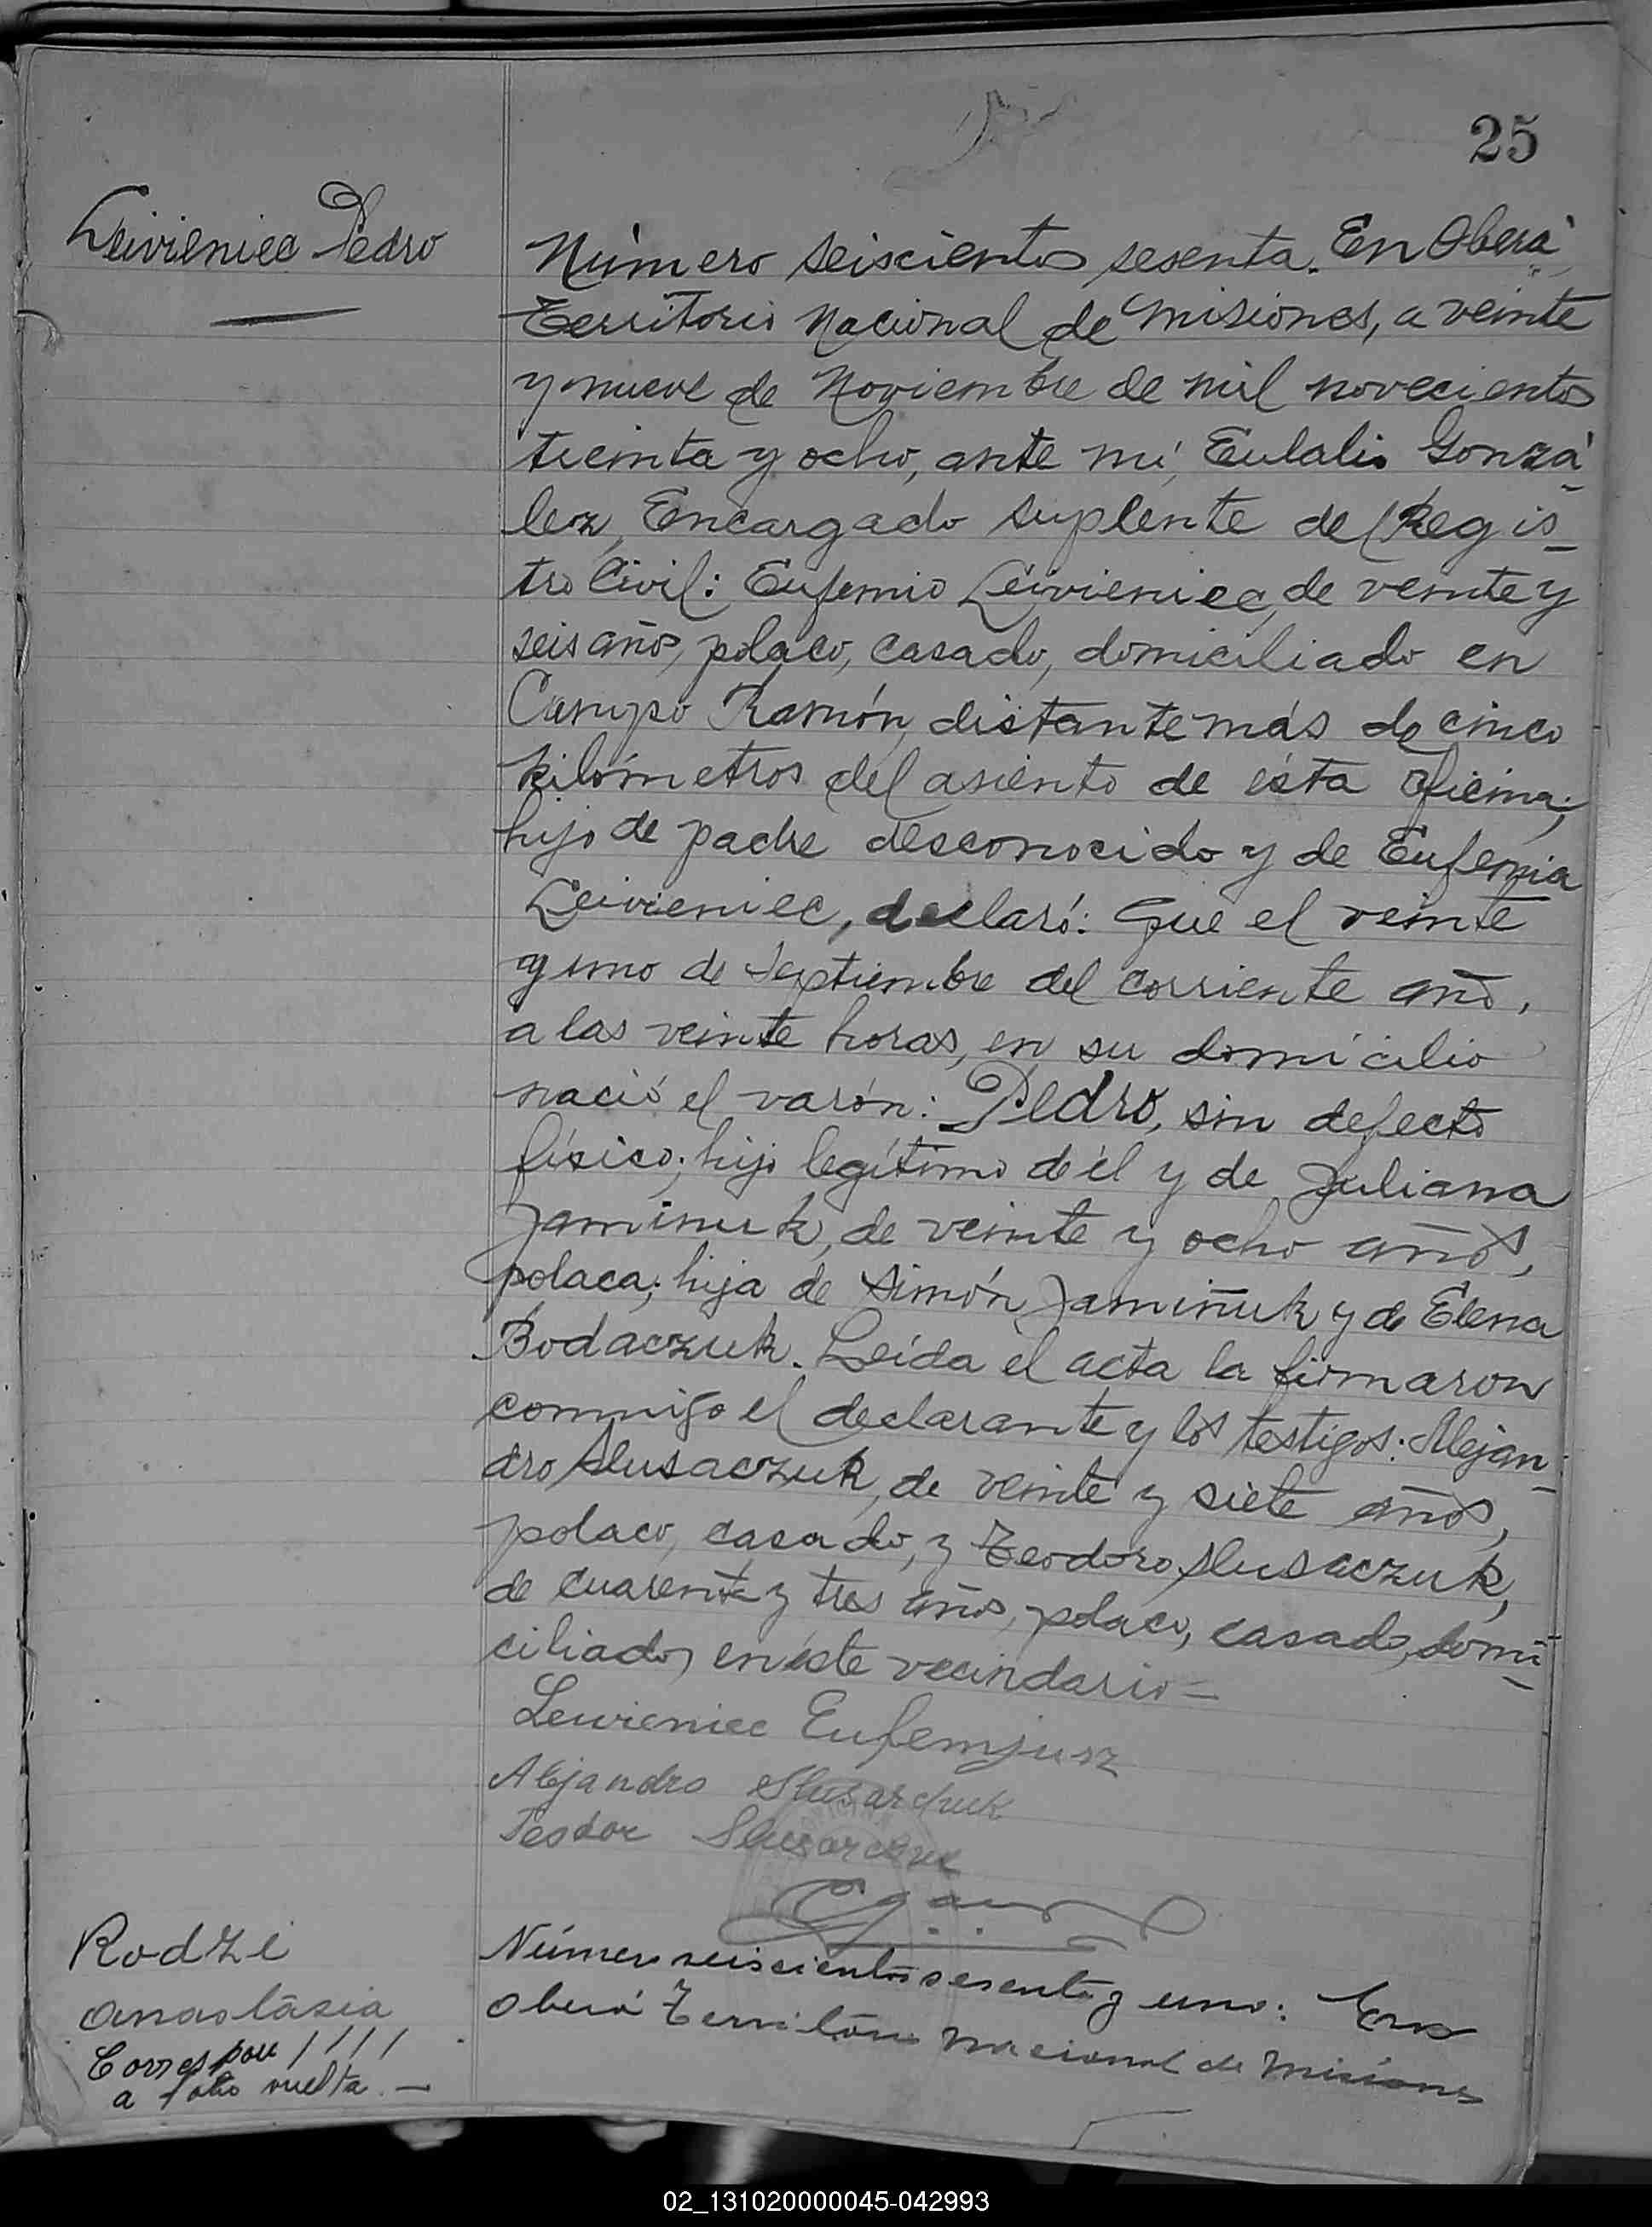 25
Leivieniec Pedro
Número seiscientos sesenta. En Oberá,
Territorio Nacional de Misiones, a veinte
y nueve de Noviembre de mil novecientos
treinta y ocho, ante mí, Eulalio Gonzá-
lez, Encargado suplente del Regis-
tro Civil: Eufemio Leivieniec, de veinte y
seis años, polaco, casado, domiciliado en
Campo Ramón, distante más de cinco
kilómetros del asiento de ésta oficina;
hijo de padre desconocido y de Eufemia
Leivieniec, declaró: Que el veinte
y uno de Septiembre del corriente año,
a las veinte horas, en su domicilio
nació el varón: Pedro, sin defecto
físico; hijo legítimo de él y de Juliana
Jaminuk, de veinte y ocho años,
polaca; hija de Simón Jamiñuk y de Elena
Bodaczuk. Leída el acta la firmaron
conmigo el declarante y los testigos: Alejan-
dro Slusaczuk, de veinte y siete años,
polaco, casado, y Teodoro Slusaczuk,
de cuarenta y tres años, polaco, casado, domi-
ciliados en éste vecindario—
Lewieniec Eufemjusz
Alejandro Slusarchuk
Teodor
Rodzi
Anastasia
Corresponde
a folio vuelta.—
Número seiscientos sesenta y uno: En
Oberá Territorio Nacional de Misiones
02_131020000045-042993